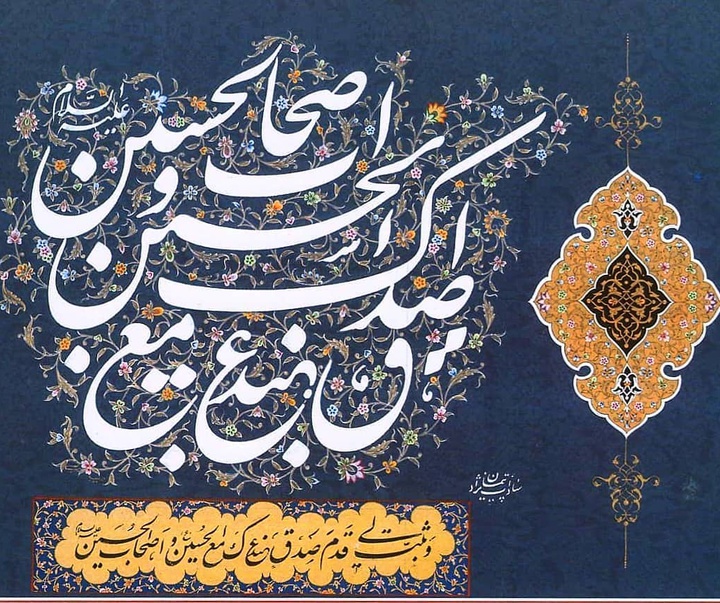 صدق عندک مع
الحسین و
اصحاب الحسین
علیه السلام
و ثبت لی قدم صدق عندک مع الحسین و اصحاب الحسین علیه السلام